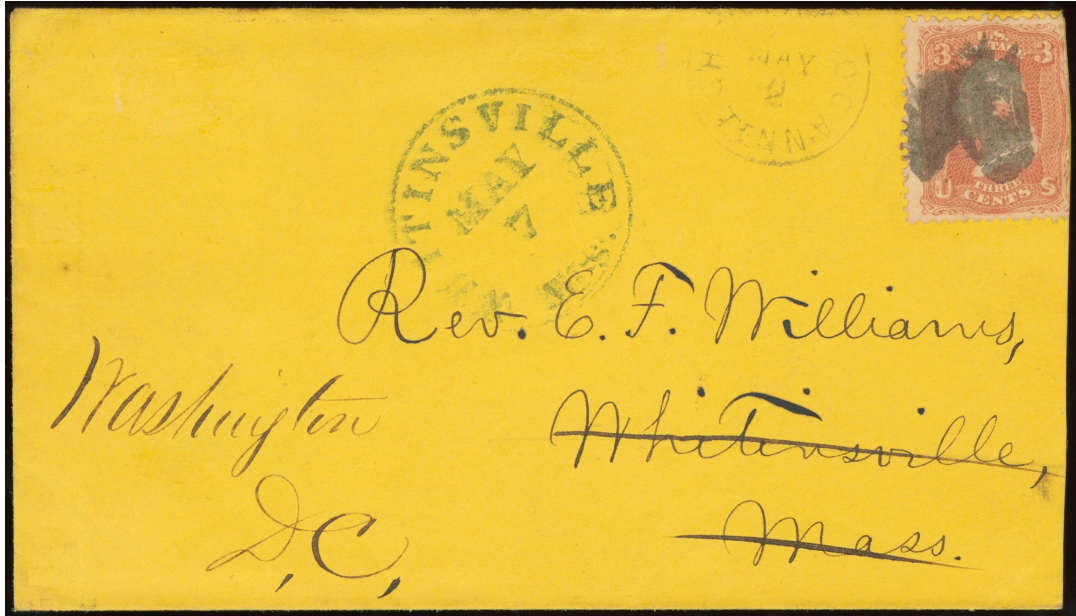 MAY
TENN.
U.S.
3 3
U S
THREE
CENTS
WHITINSVILLE MASS.
MAY
7
Rev. E. F. Williams,
Whitinsville,
Mass.
Washington
D,C,